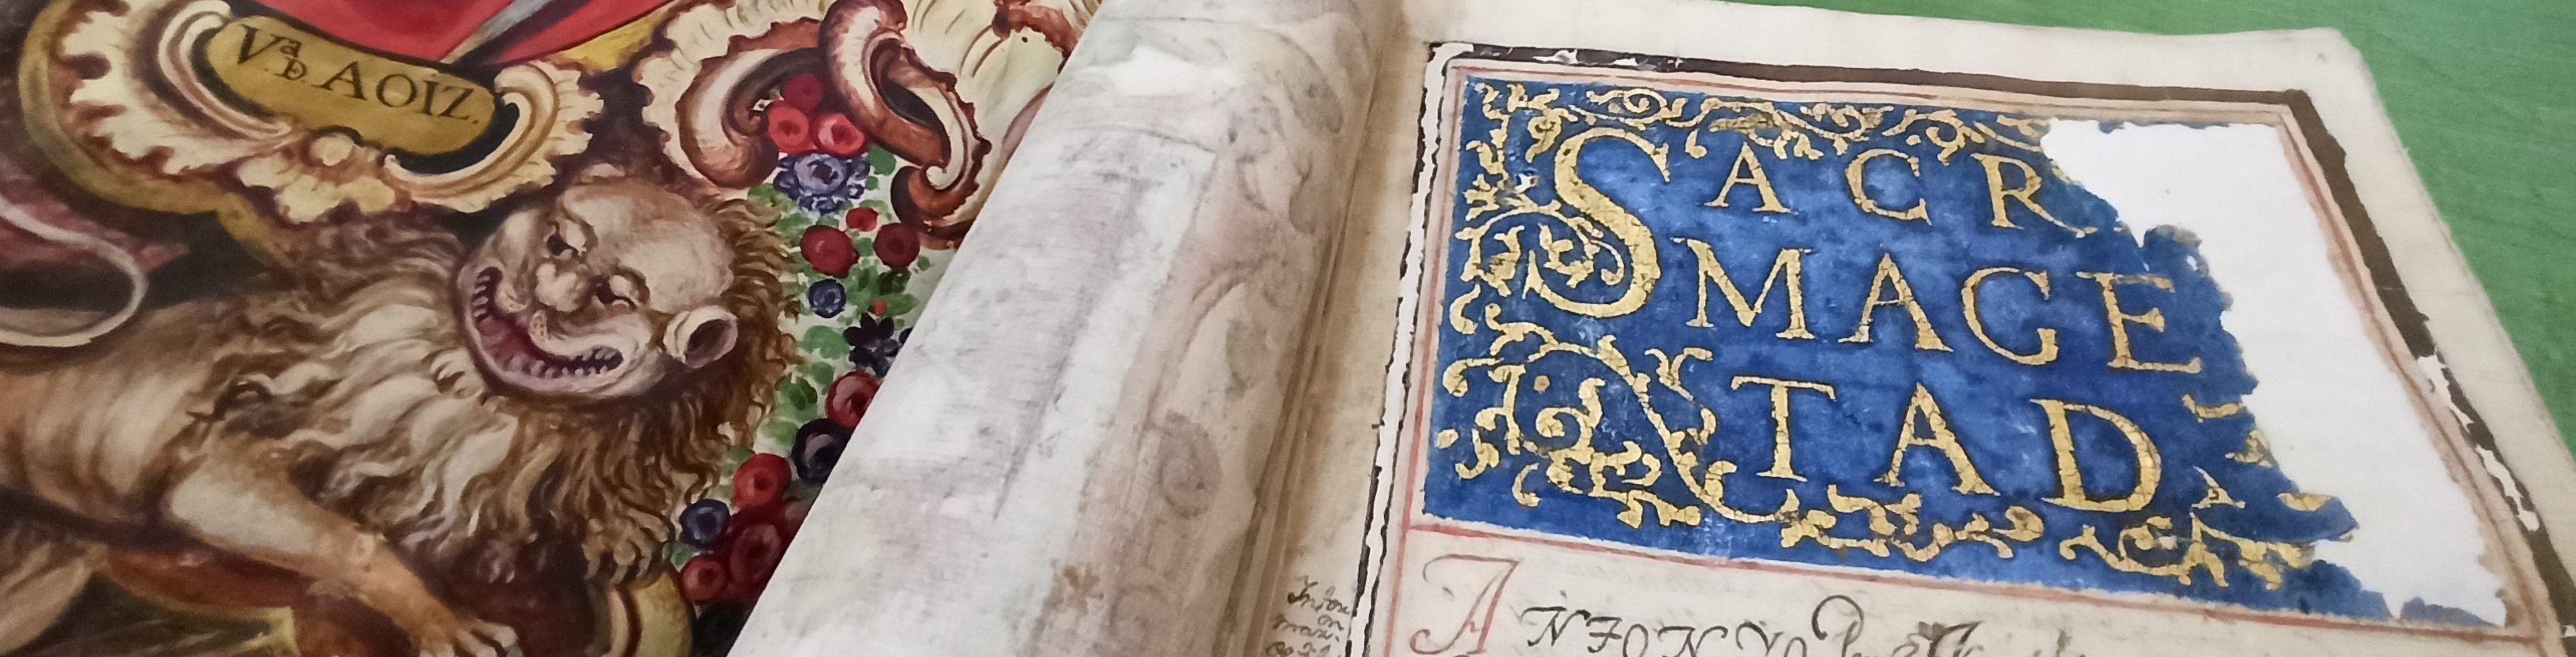 Vª D. AOIZ.
SACR
MAGE
STAD
ANTONYO